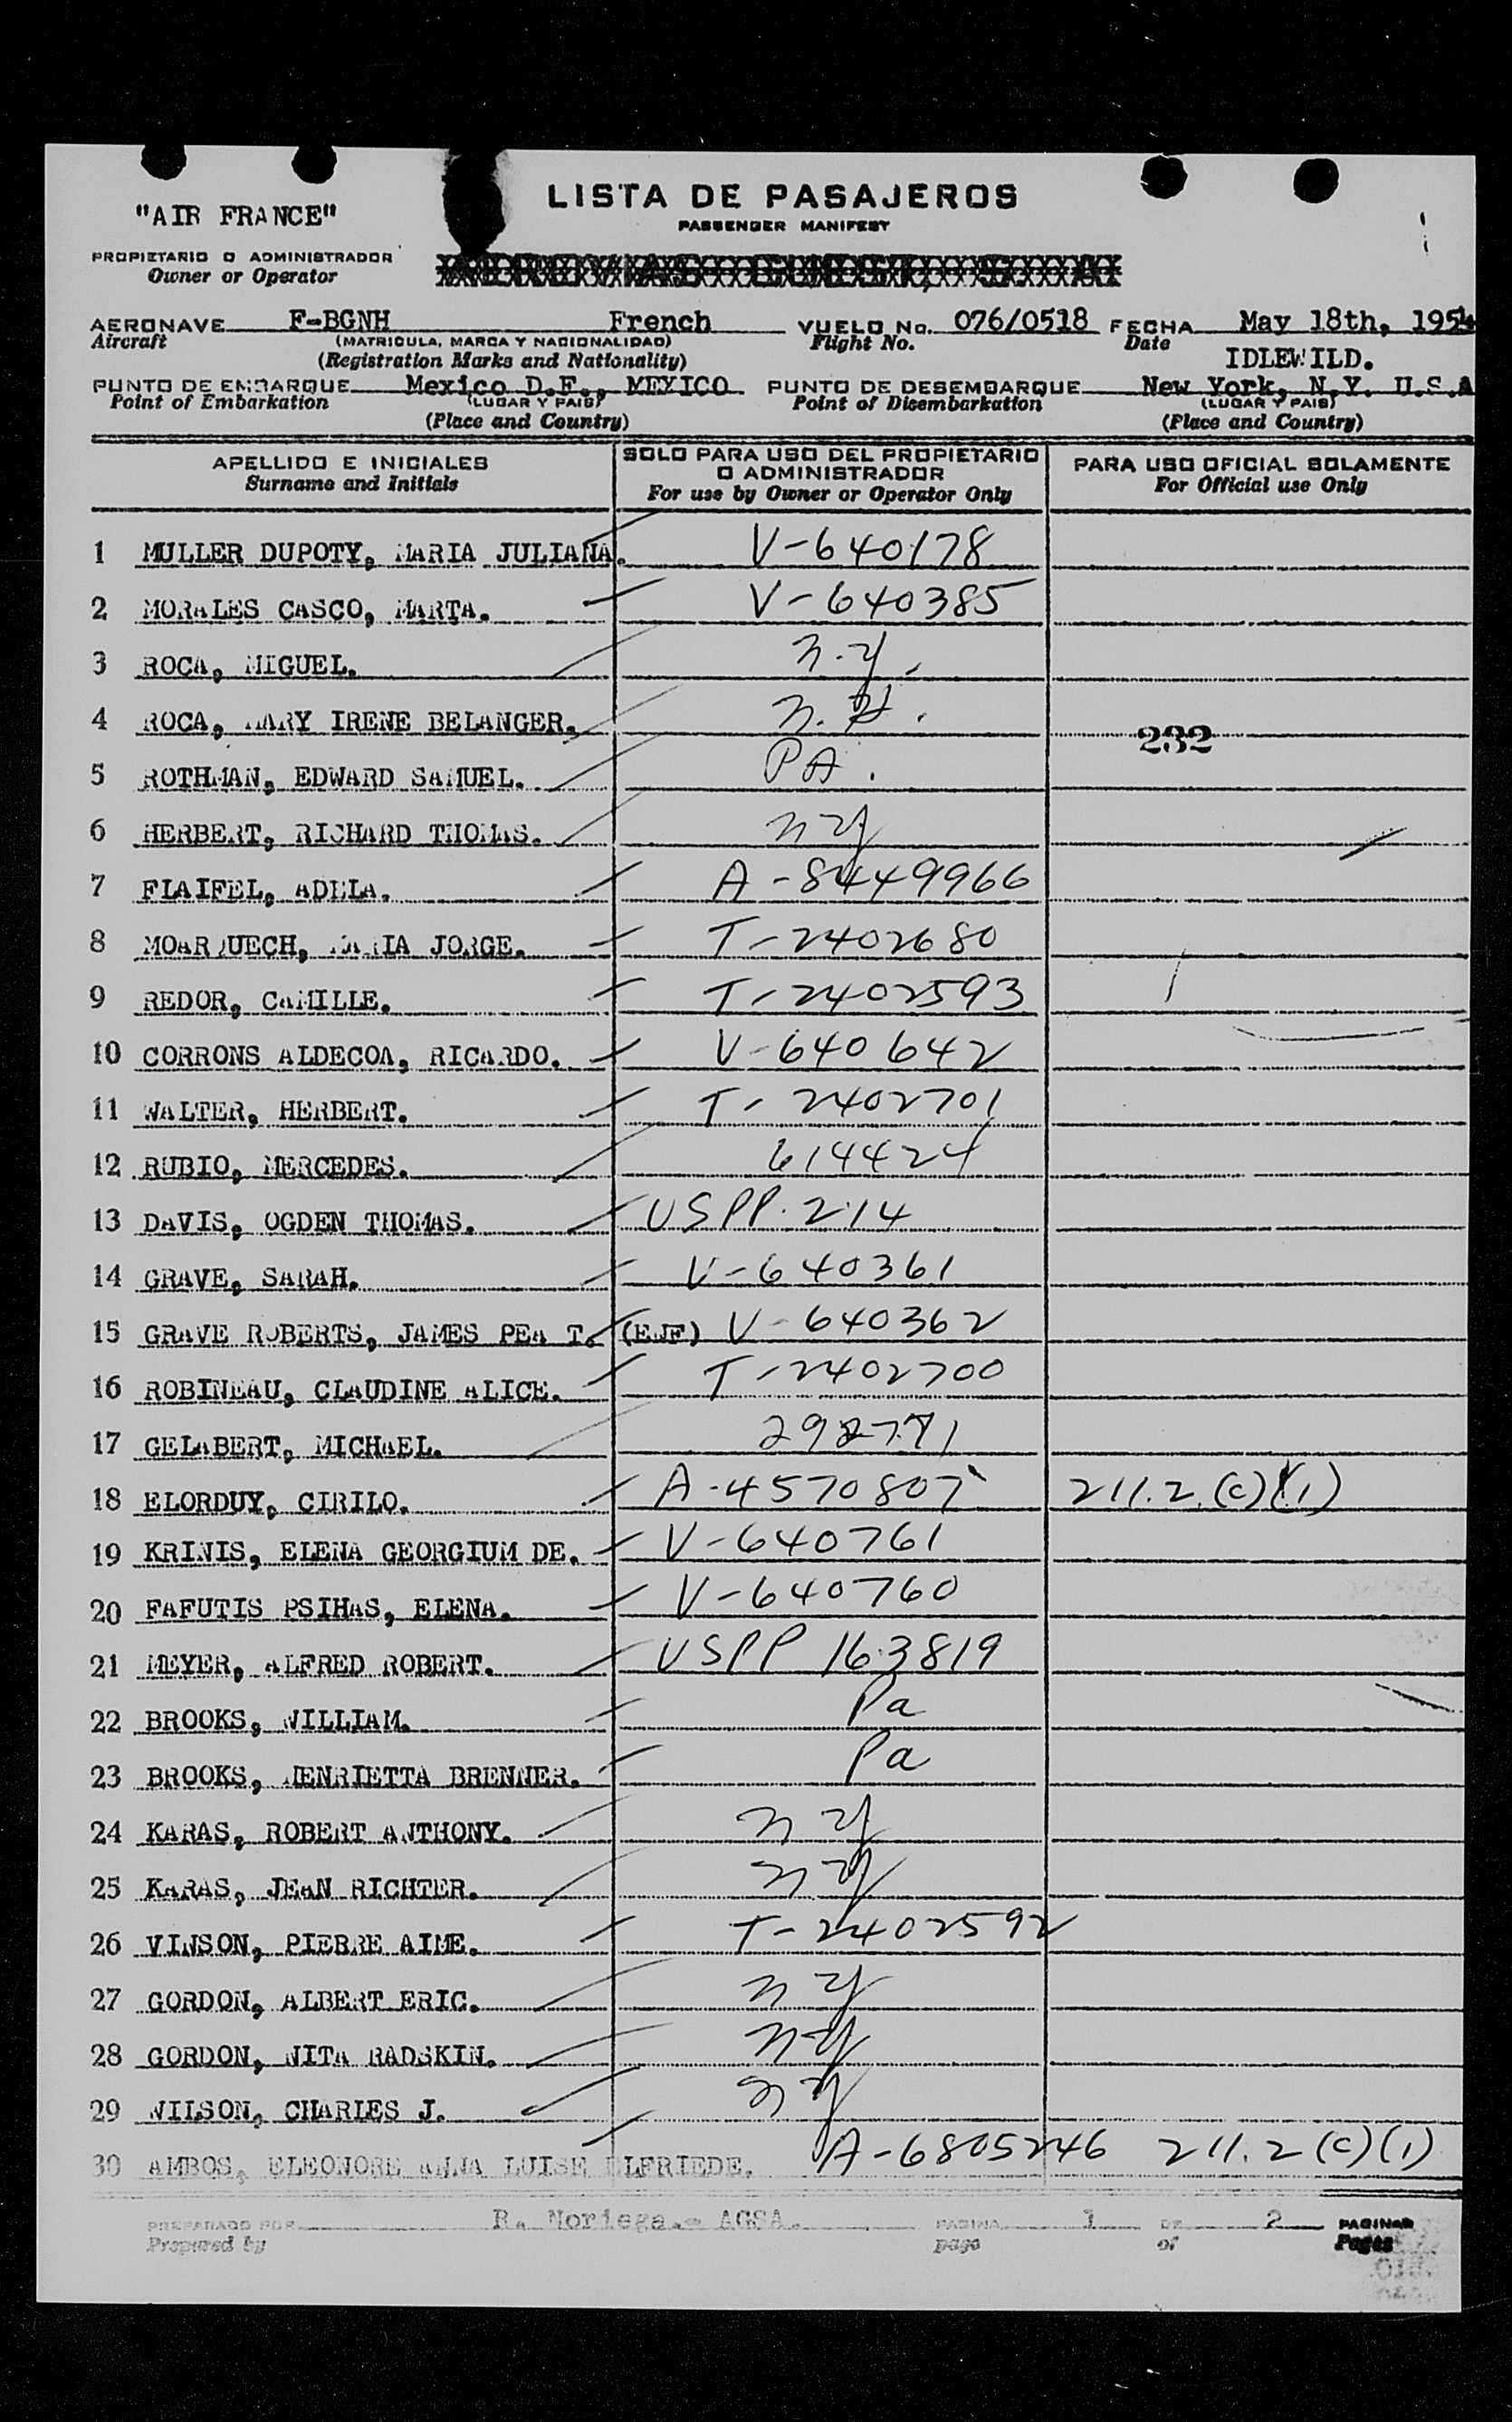 "AIR FRANCE"
LISTA DE PASAJEROS
PASSENGER MANIFEST
PROPIETARIO O ADMINISTRADOR
Owner or Operator
AERONAVE F-BGNH French VUELO No. 076/0518 FECHA May 18th, 1954
Aircraft (MATRICULA, MARCA Y NACIONALIDAD) Flight No. Date
(Registration Marks and Nationality) IDLEWILD.
PUNTO DE EMBARQUE Mexico D.F., MEXICO PUNTO DE DESEMBARQUE New York, N.Y. U.S.A
Point of Embarkation (LUGAR Y PAIS) Point of Disembarkation (LUGAR Y PAIS)
(Place and Country) (Place and Country)
APELLIDO E INICIALES SOLO PARA USO DEL PROPIETARIO O ADMINISTRADOR PARA USO OFICIAL SOLAMENTE
Surname and Initials For use by Owner or Operator Only For Official use Only
1 MULLER DUPOTY, MARIA JULIANA. V-640178
2 MORALES CASCO, MARTA. V-640385
3 ROCA, MIGUEL. N.Y.
4 ROCA, MARY IRENE BELANGER. N.Y.
232
5 ROTHMAN, EDWARD SAMUEL. PA.
6 HERBERT, RICHARD THOMAS. NY
7 FLAIFEL, ADELA. A-8449966
8 MOARQUECH, MARIA JORGE. T-2402680
9 REDOR, CAMILLE. T-2402593
10 CORRONS ALDECOA, RICARDO. V-640642
11 WALTER, HERBERT. T-2402701
12 RUBIO, MERCEDES. 614424
13 DAVIS, OGDEN THOMAS. USPP. 214
14 GRAVE, SARAH. V-640361
15 GRAVE ROBERTS, JAMES PEA T. (ENF) V-640362
16 ROBINEAU, CLAUDINE ALICE. T-2402700
17 GELABERT, MICHAEL. 292771
18 ELORDUY, CIRILO. A-4570807 211.2.(c)(1)
19 KRINIS, ELENA GEORGIUM DE. V-640761
20 FAFUTIS PSIHAS, ELENA. V-640760
21 MEYER, ALFRED ROBERT. USPP 163819
22 BROOKS, WILLIAM. Pa
23 BROOKS, HENRIETTA BRENNER. Pa
24 KARAS, ROBERT ANTHONY. NY
25 KARAS, JEAN RICHTER. NY
26 VINSON, PIERRE AIME. T-2402592
27 GORDON, ALBERT ERIC. NY
28 GORDON, NITA RADSKIN. NY
29 WILSON, CHARLES J. NY
30 AMBOS, ELEONORE ANNA LUISE ELFRIEDE. A-6805246 211.2(c)(1)
PREPARADO POR R. Noriega.- AGSA. PAGINA 1 DE 2 PAGINAS
Prepared by page of Pages